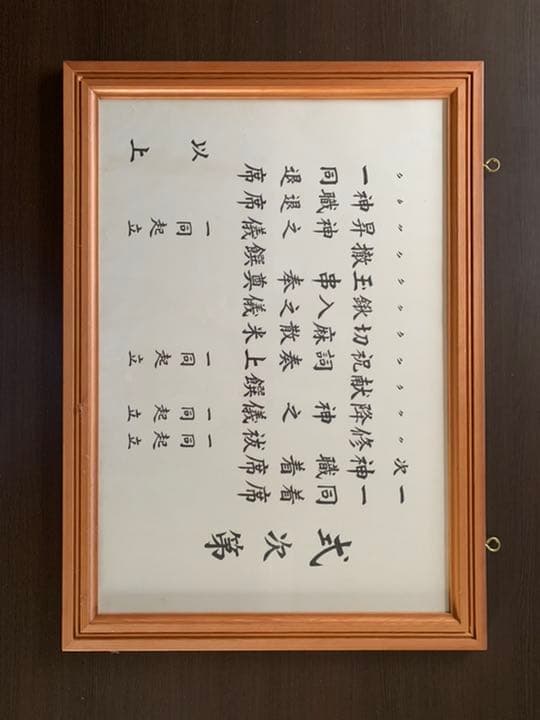 式次第
一 一同着席
次 神職着席
〃 修祓之儀 一同起立
〃 降神之儀 一同起立
〃 献饌
〃 祝詞奏上 一同起立
〃 切麻散米
〃 鍬入之儀
〃 玉串奉奠
〃 撤饌
〃 昇神之儀 一同起立
〃 神職退席
〃 一同退席
以上